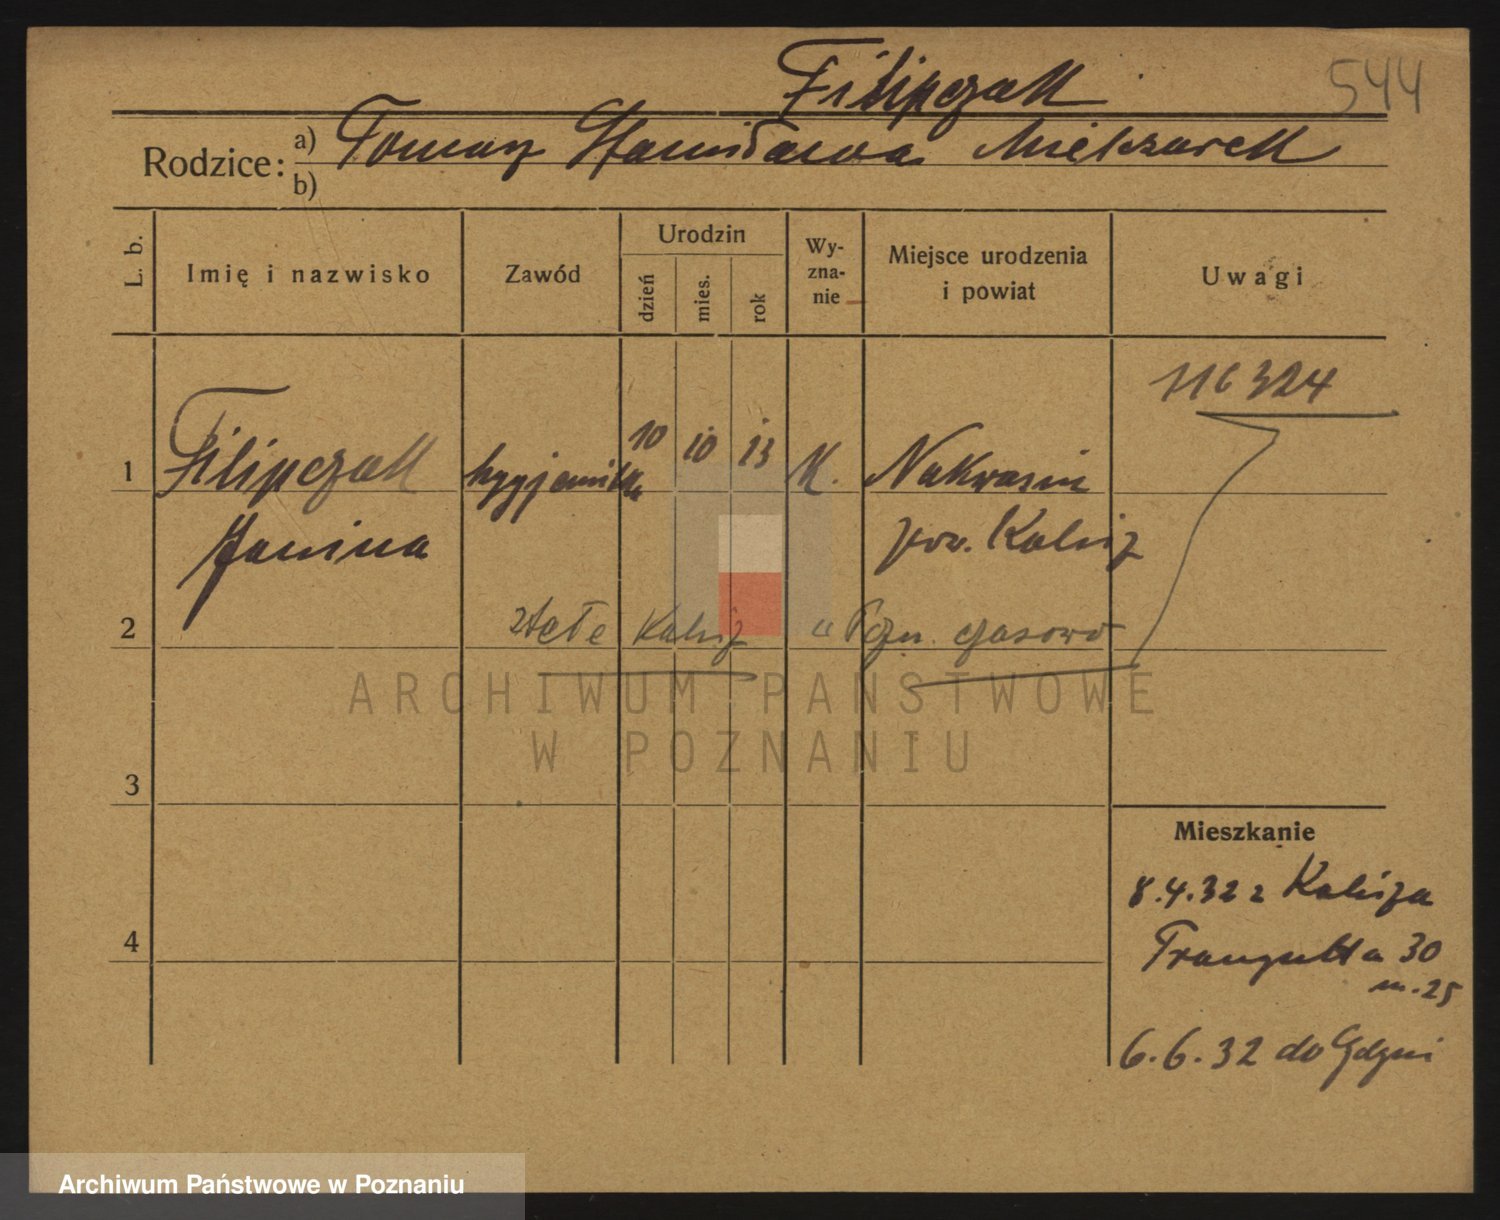 Filipczak
544
Rodzice: a) Tomasz Stanisława
b)
L. b.
Imię i nazwisko
Zawód
Urodzin
dzień
mies.
rok
Wy-
zna-
nie
Miejsce urodzenia
i powiat
Uwagi
116324
1
Filipczak hygjenistka 10 10 13 K. Nakwasin
Janina pow. Kalisz
2
stałe Kalisz w Pozn. czasowo
ARCHIWUM PAŃSTWOWE
W POZNANIU
3
Mieszkanie
8.4.32 z Kalisza
4
Traugutta 30
m. 25
6.6.32 do Gdyni
Archiwum Państwowe w Poznaniu